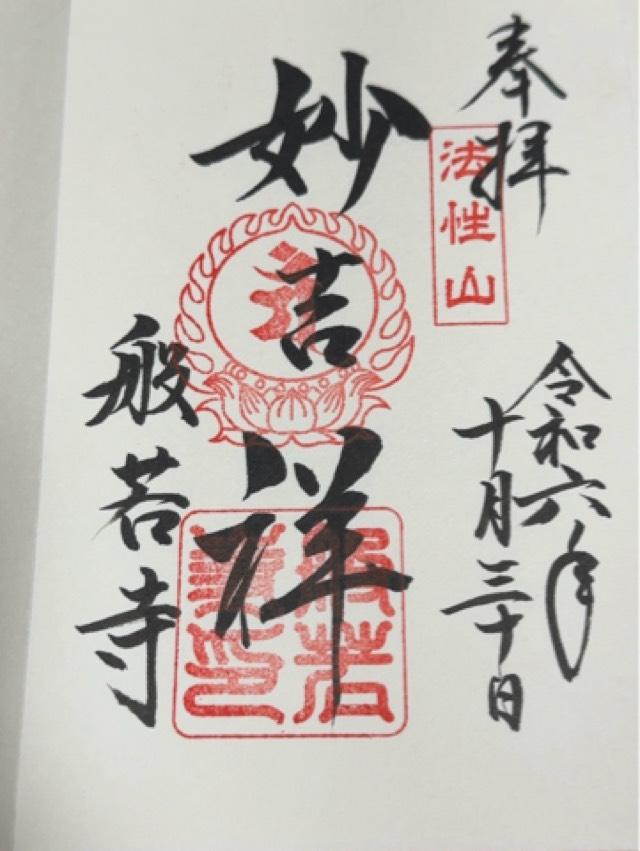 奉拝
法性山
令和六年
十月三十日
妙吉祥
般若寺